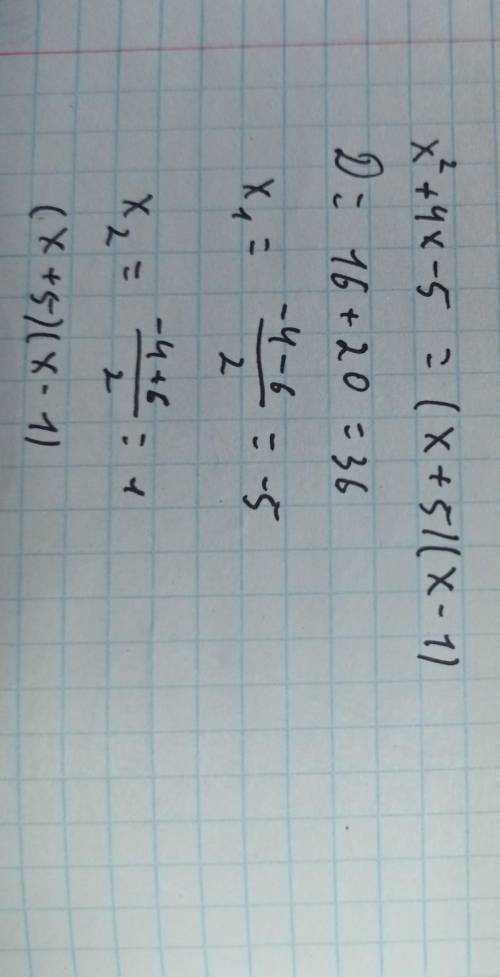 x² + 4x - 5 = (x + 5)(x - 1)
D = 16 + 20 = 36
x₁ = \frac{-4-6}{2} = -5
x₂ = \frac{-4+6}{2} = 1
(x + 5)(x - 1)